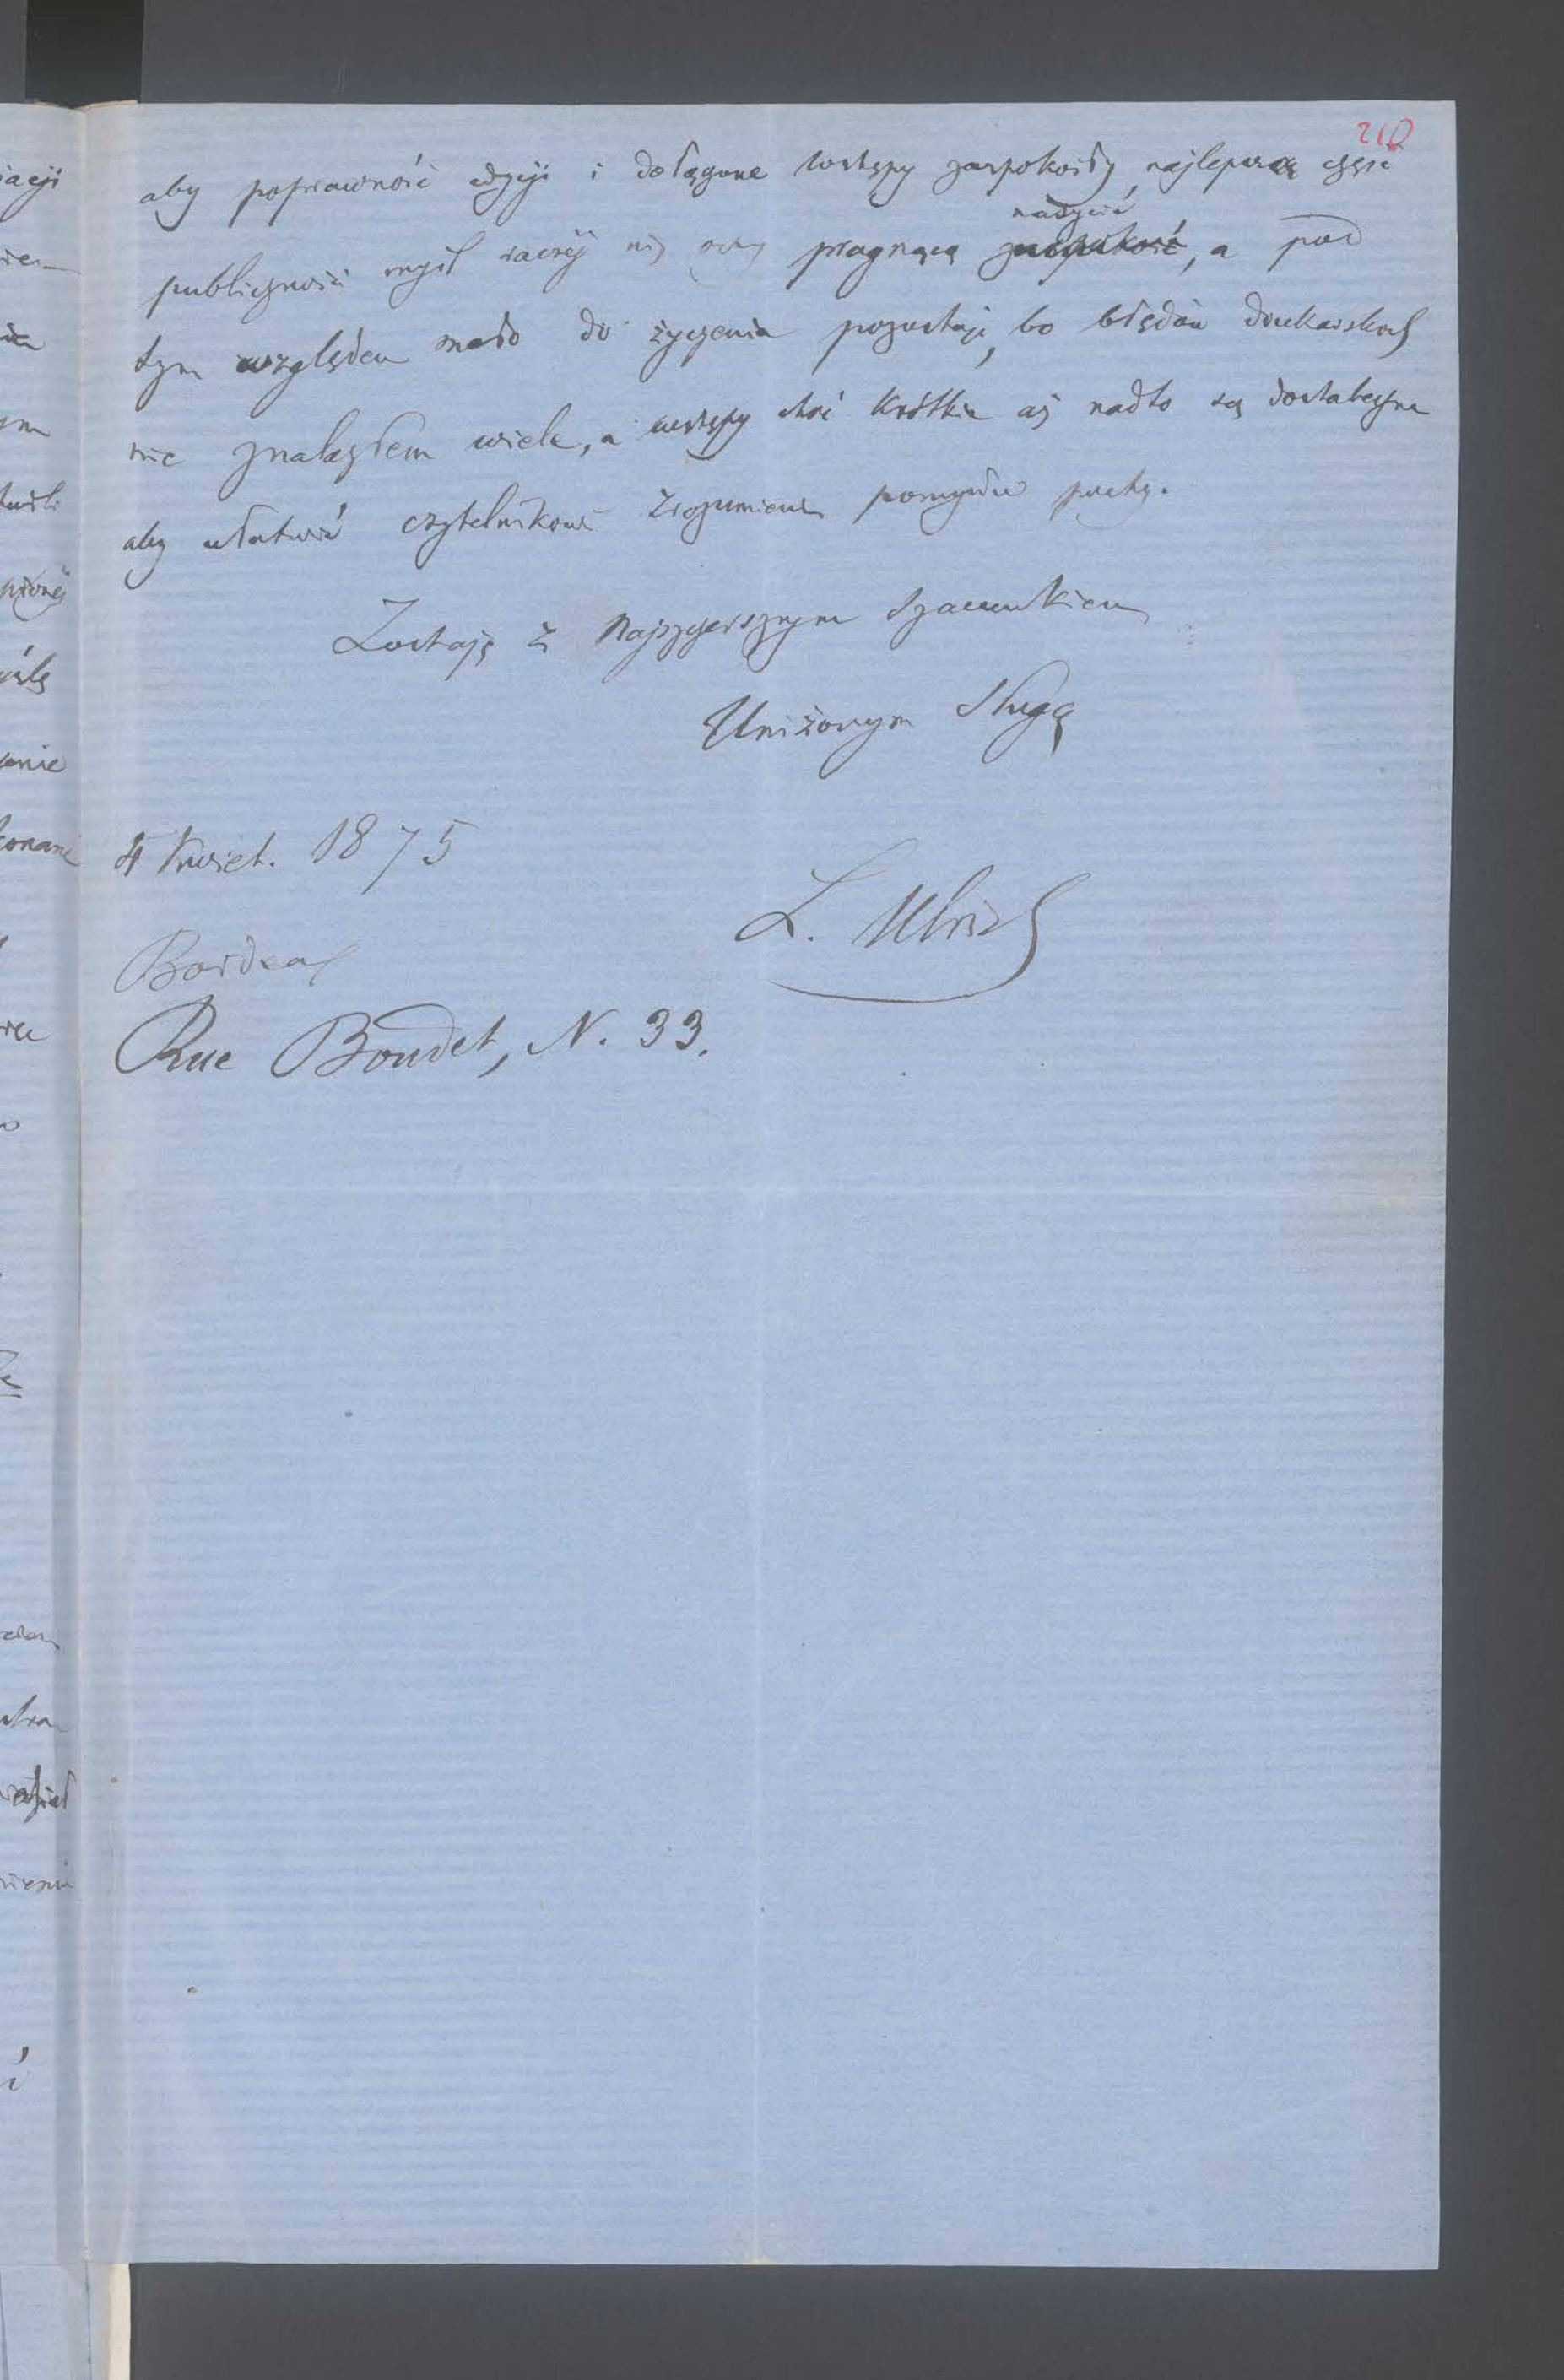 210
aby poprawność edycji i dołączone wstępy zaspokoiły najlepszą część
nasycić
publiczności myśl raczéj niż oczy pragnącą zaspokoić, a pod
tym względem mało do życzenia pozostaje, bo błędów drukarskich
nie znalazłem wiele, a wstępy choć krótkie aż nadto są dostateczne
aby ułatwić czytelnikowi zrozumienie pomysłu poety.
Zostaję z najszczerszym szacunkiem
Uniżonym sługą
4 Kwiet. 1875
L. Ulrich
Bordeaux
Rue Boudet, N. 33.